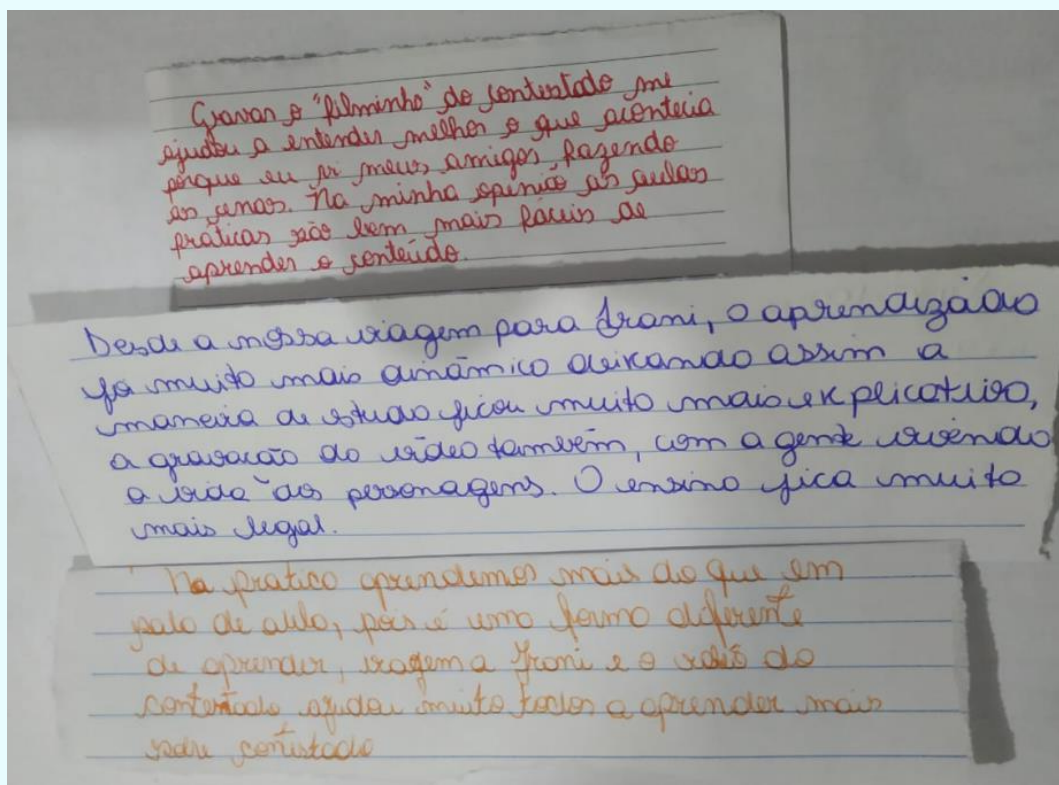 Gravar o "filminho" do contestado me
ajudou a entender melhor o que acontecia
porque eu vi meus amigos fazendo
as cenas. Na minha opinião as aulas
práticas são bem mais fáceis de
aprender o conteúdo.
Desde a nossa viagem para Irani, o aprendizado
foi muito mais dinâmico deixando assim a
maneira de estudo ficou muito mais explicativo,
a gravação do vídeo também, com a gente vivendo
a vida dos personagens. O ensino fica muito
mais legal.
Na pratica aprendemos mais do que em
sala de aula, pois é uma forma diferente
de aprender, viagem a Irani e o do
contestado ajudou muito todos a aprender mais
sobre contestado